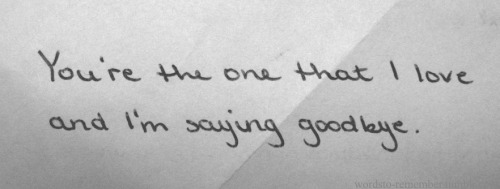 You're the one that I love
and I'm saying goodbye.